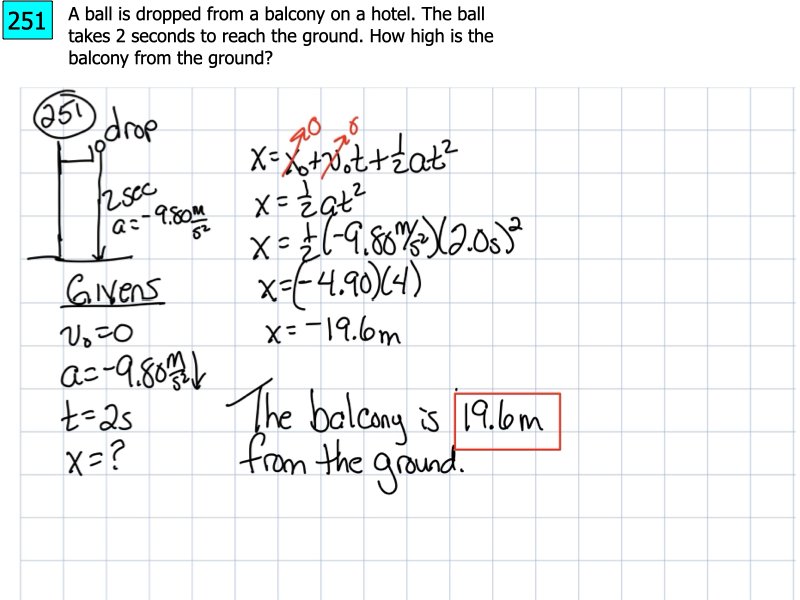 251
A ball is dropped from a balcony on a hotel. The ball
takes 2 seconds to reach the ground. How high is the
balcony from the ground?
251
drop
2 sec
a=-9.80 m/s²
Givens
v₀=0
a=-9.80 m/s² ↓
t=2s
x=?
0 0
x=x₀+v₀t+½at²
x=½at²
x=½(-9.80 m/s²)(2.0s)²
x=(-4.90)(4)
x=-19.6m
The balcony is 19.6m
from the ground.